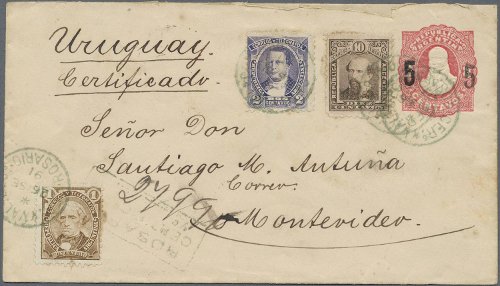 Uruguay.
Certificado.
2
CENTAVOS
10
REPUBLICA
REPUBLICA
ARGENTINA
5 5
CENTAVOS
Señor Don
Santiago M. Antuña
Correo
27990
Montevideo
ROSARIO
96
1